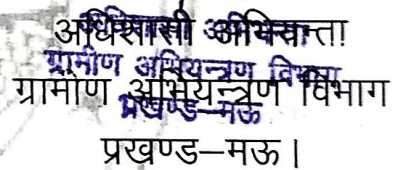 अधिशासी अभियन्ता
ग्रामीण अभियन्त्रण विभाग
प्रखण्ड–मऊ
अधिशासी अभियन्ता
ग्रामीण अभियन्त्रण विभाग
प्रखण्ड–मऊ।